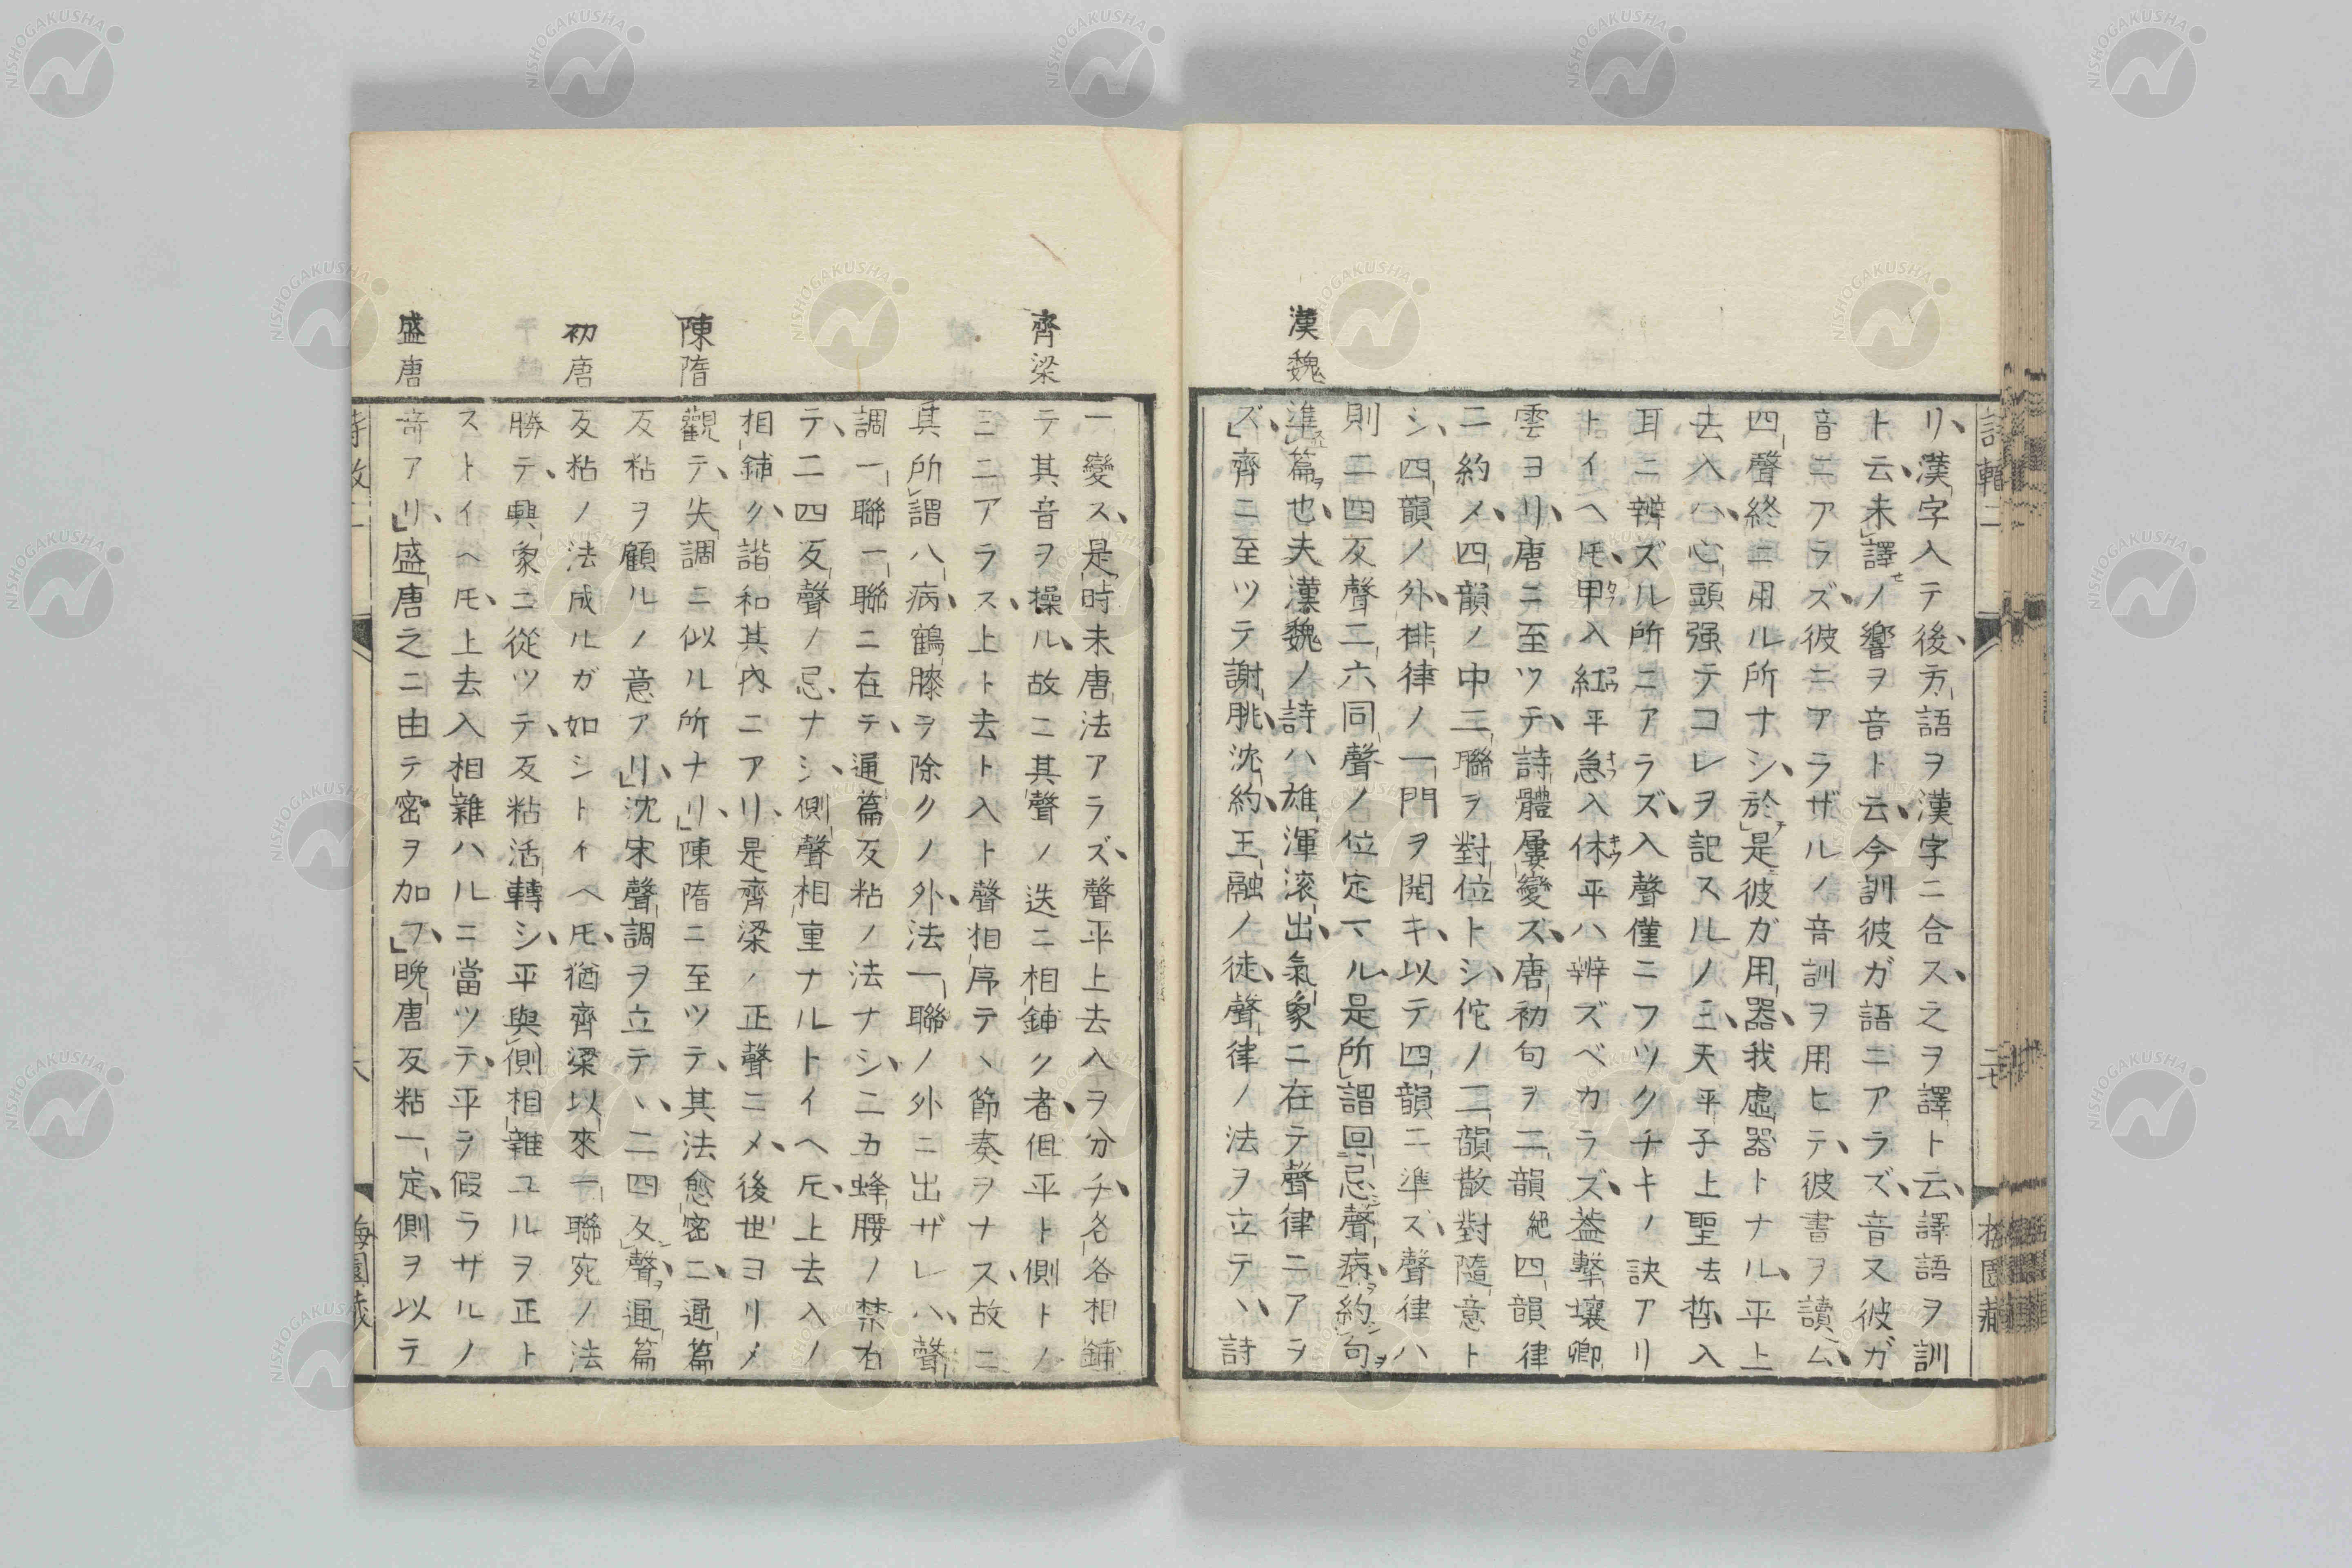 リ、漢字入テ後、方語ヲ漢字ニ合ス、之ヲ譯ト云、譯語ヲ訓
ト云、未譯ノ響ヲ音ト云、今訓彼ガ語ニアラズ、音又彼ガ
音ニアラズ、彼ニアラザルノ音訓ヲ用ヒテ、彼書ヲ讀ム、
四聲終ニ用ル所ナシ、於是彼ガ用器、我虛器トナル、平上
去入ハ、心頭强テコレヲ記スルノミ、天平子上聖去哲入
耳ニ辨ズル所ニアラズ、入聲僅ニフツクチキノ訣アリ
トイヘモ、甲入紅平急入休平ハ辨ズベカラズ、葢擊壤卿
雲ヨリ、唐ニ至ツテ、詩體屢變ズ、唐初句ヲ二韻絕四韻律
ニ約メ、四韻ノ中二聯ヲ對位トシ、佗ノ二韻散對隨意ト
シ、四韻ノ外、排律ノ一門ヲ開キ、以テ四韻ニ準ズ、聲律ハ
則二四反聲二六同聲ノ位定マル、是所謂回忌聲病、約句
漢魏
準篇也、夫漢魏ノ詩ハ雄渾滚出、氣象ニ在テ聲律ニアラ
ズ、齊ニ至ツテ謝朓、沈約、王融ノ徒、聲律ノ法ヲ立テ、詩
一變ス、是時未唐法アラズ、聲平上去入ヲ分チ、各各相鋪
齊梁
テ其音ヲ操ル、故ニ其聲ノ迭ニ相鋪ク者、但平ト側トノ
ミニアラス、上ト去ト入ト聲相序テ、節奏ヲナス、故ニ
其所謂八病、鶴膝ヲ除クノ外、法一聯ノ外ニ出ザレハ、聲
調一聯一聯ニ在テ、通篇反粘ノ法ナシ、ニカ蜂腰ノ禁有
テ、二四反聲ノ忌ナシ、側聲相重ナルトイヘ𪜈、上去入ノ
相鋪ク、諧和其內ニアリ、是齊梁ノ正聲ニメ、後世ヨリメ
陳隋
觀テ、失調ニ似ル所ナリ、陳隋ニ至ツテ、其法愈密ニ、通篇
反粘ヲ顧ルノ意アリ、沈宋聲調ヲ立テ、二四反聲、通篇
初唐
反粘ノ法成ルガ如シトイヘモ、猶齊梁以來一聯宛ノ法
勝テ、興象ニ從ツテ、反粘活轉シ、平與側相雜ユルヲ正ト
ストイヘモ、上去入相雜ハルニ當ツテ、平ヲ假ラザルノ
盛唐
音アリ、盛唐之ニ由テ密ヲ加フ、晚唐反粘一定、側ヲ以テ